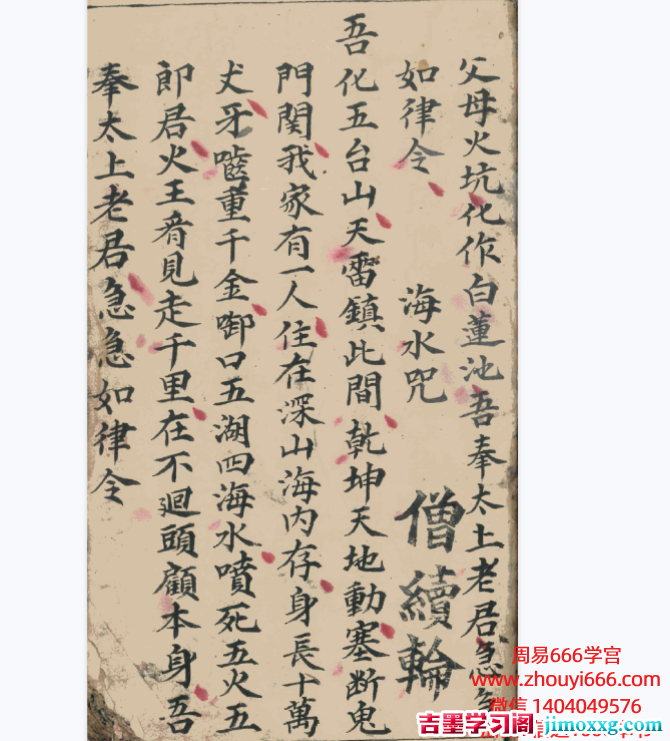 父母火坑化作白蓮池吾奉太上老君急急
如律令 海水咒 僧續輪
吾化五台山天雷鎮此間乾坤天地動塞断鬼
門関我家有一人住在深山海内存身長十萬
犬牙噛重千金啣口五湖四海水噴死五火五
即居火王看見走千里在不迴頭顧本身吾
奉太上老君急急如律令
周易666学宫
www.zhouyi666.com
微信 1404049576
吉墨学习阁 jimoxxg.com